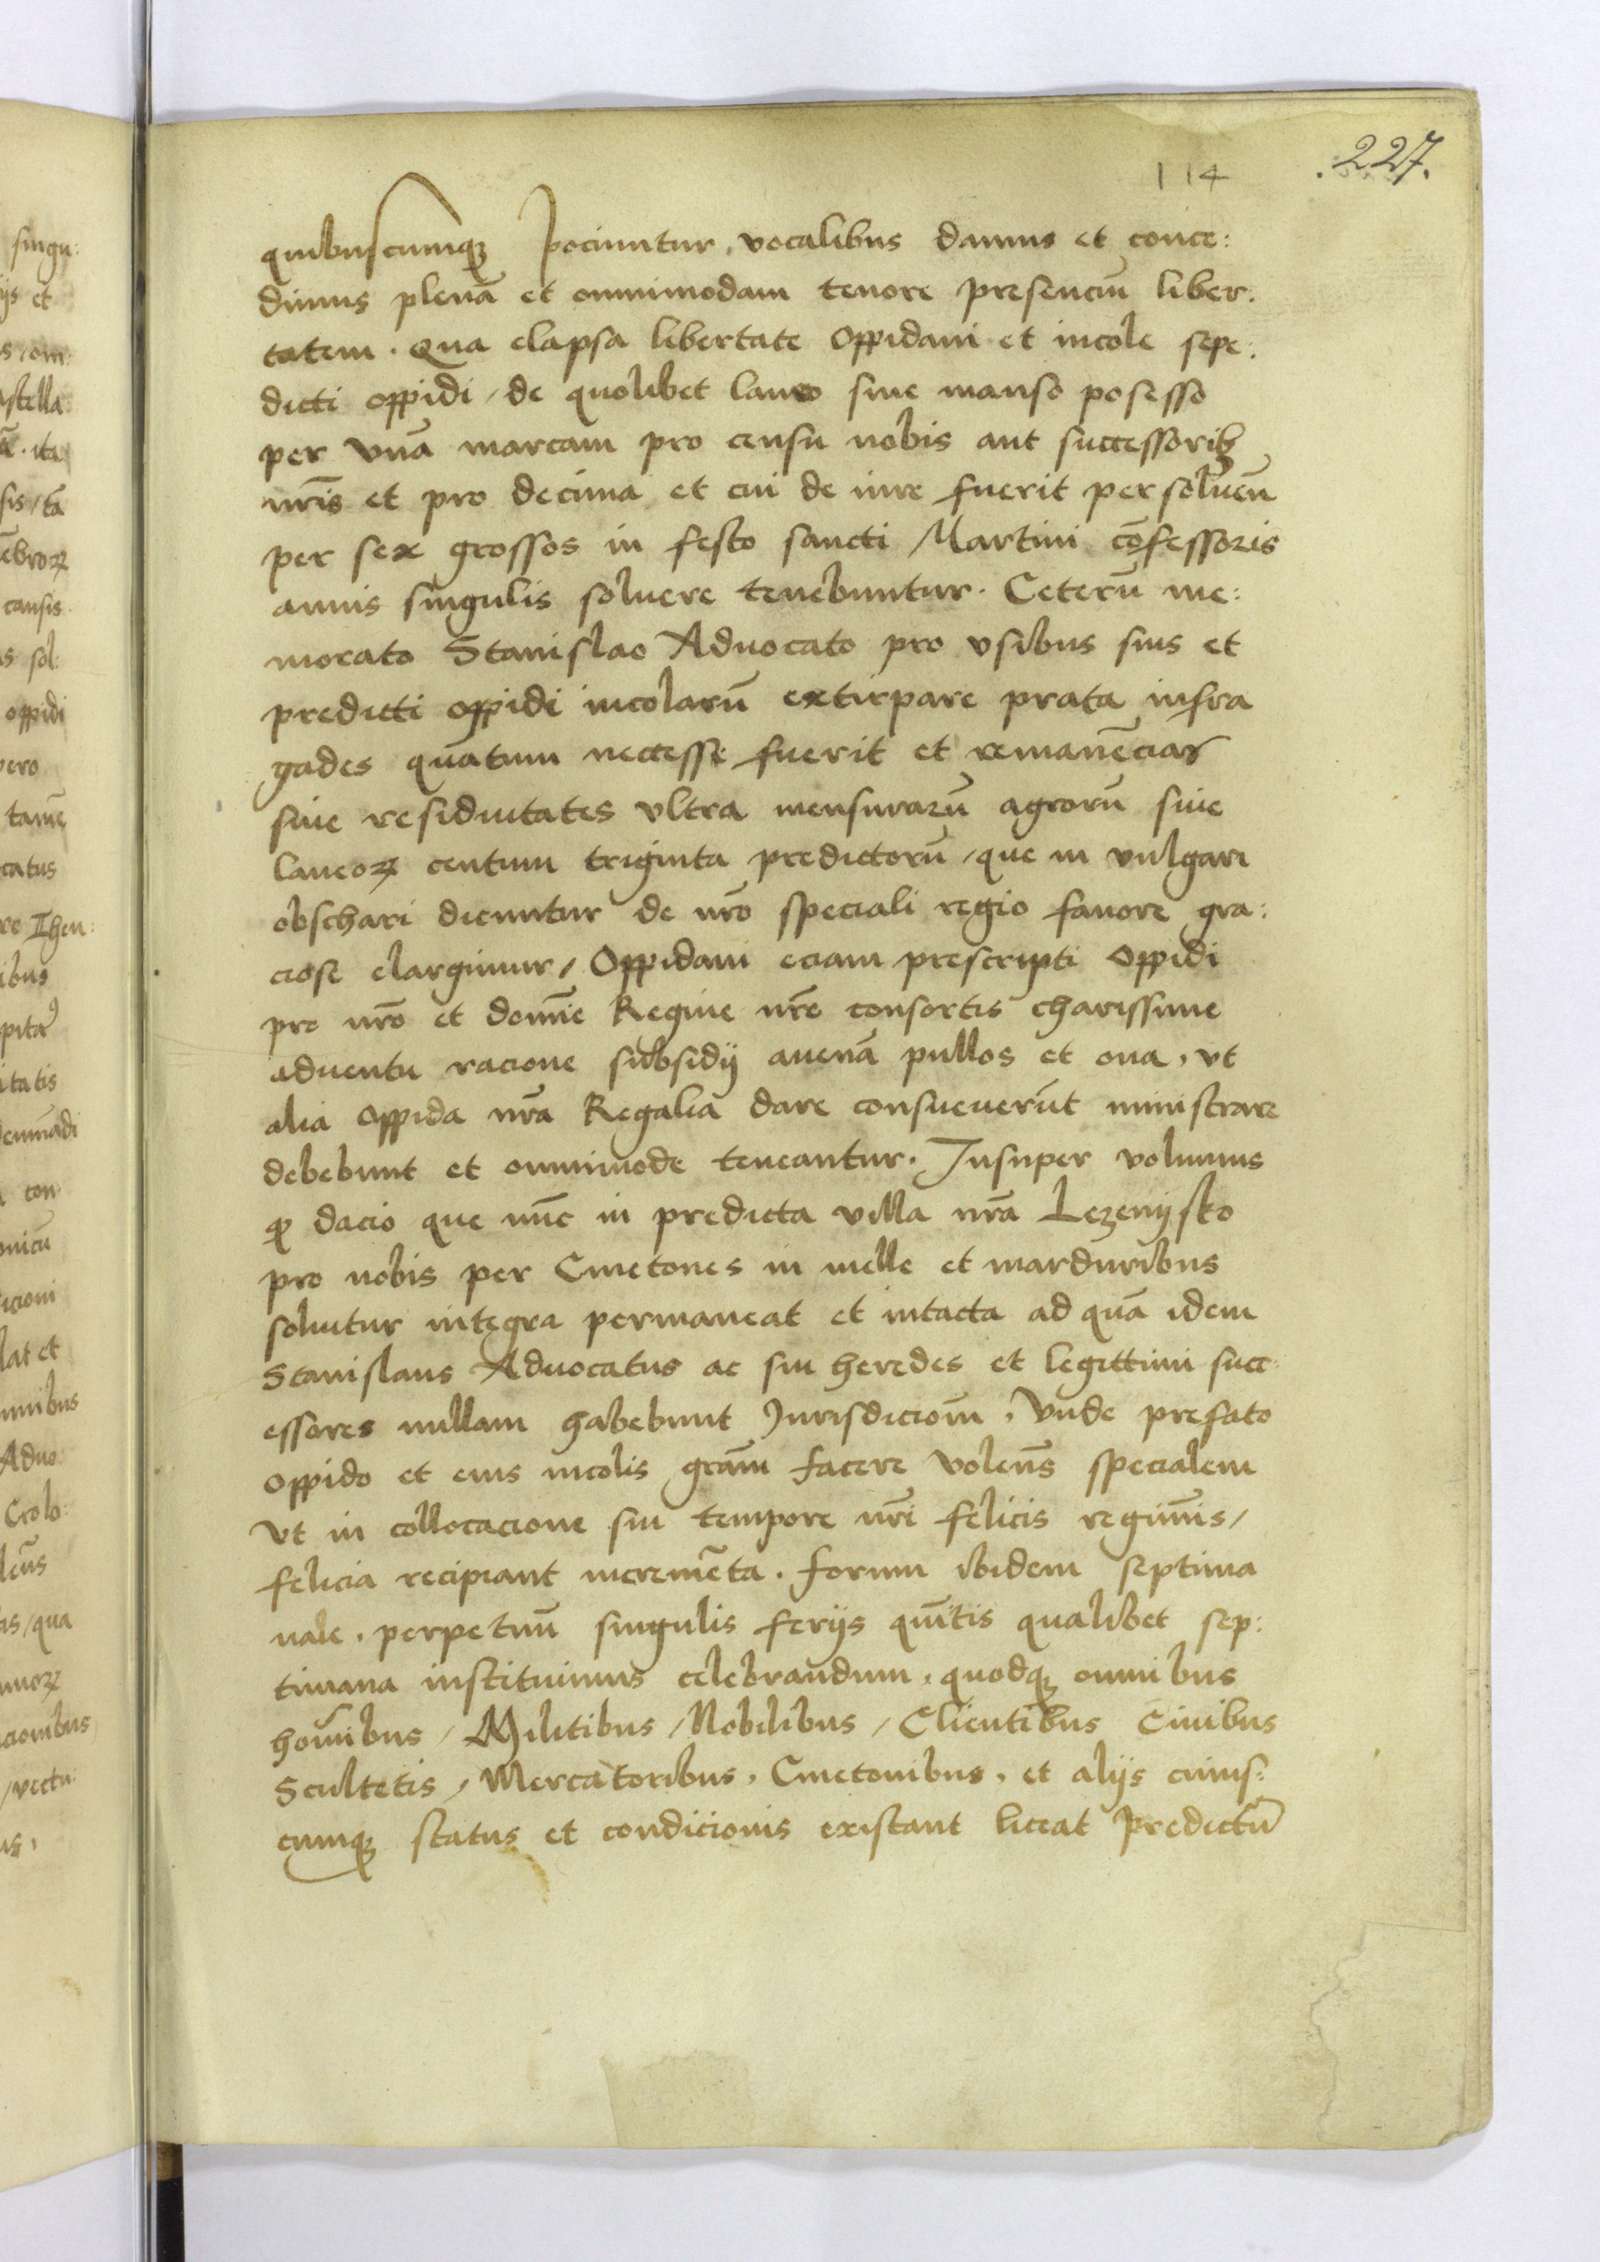 114
.227.
quibuscumqꝫ pociuntur, vocalibus damus et conce:
dimus plenā et omnimodam tenore presenciū liber:
tatem. Qua elapsa libertate Oppidani et incole sepe:
dicti oppidi / de quolibet laneo siue manso posesso
per vnā marcam pro censu nobis aut successoribꝫ
nr̄is et pro decima et cui de iure fuerit persoluen̄
per sex grossos in festo sancti Martini cōfessoris
annis singulis soluere tenebuntur. Ceterū me:
morato Stanislao Aduocato pro vsibus suis et
predicti oppidi incolarū extirpare prata infra
gades quātum necesse fuerit et remanēcias
siue residuitates vltra mensurarū agrorū siue
laneoꝝ centum triginta predictorū / que in vulgari
obschari dicuntur de nr̄o speciali regio fauore gra:
ciose elargimur / Oppidani eciam prescripti Oppidi
pro nr̄o et domīe Regine nr̄e consortis charissime
aduentu racione subsidij auenā pullos et oua, vt
alia Oppida nr̄a Regalia dare consueuerūt ministrare
debebunt et omnimode teneantur. Insuper volumus
qꝫ dacio que nūc in predicta villa nr̄a Lezenysko
pro nobis per Cmetones in melle et marduribus
soluitur integra permaneat et intacta ad quā idem
Stanislaus Aduocatus ac sui heredes et legittimi succ:
essores nullam habebunt Jurisdicioem̄, vnde prefato
oppido et eius incolis grām facere volens̄ specialem
vt in collocacione sui tempore nr̄i felicis regimīs /
felicia recipiant incremēta. forum ibidem septima
nale, perpetuū singulis ferijs quītis qualibet sep:
timana instituimus celebrandum, quodqꝫ omnibus
hoībus / Militibus / Nobilibus / Clientibus Ciuibus
Scultetis / Mercatoribus, Cmetonibus, et alijs cuius:
cumqꝫ status et condicionis existant liceat predictū